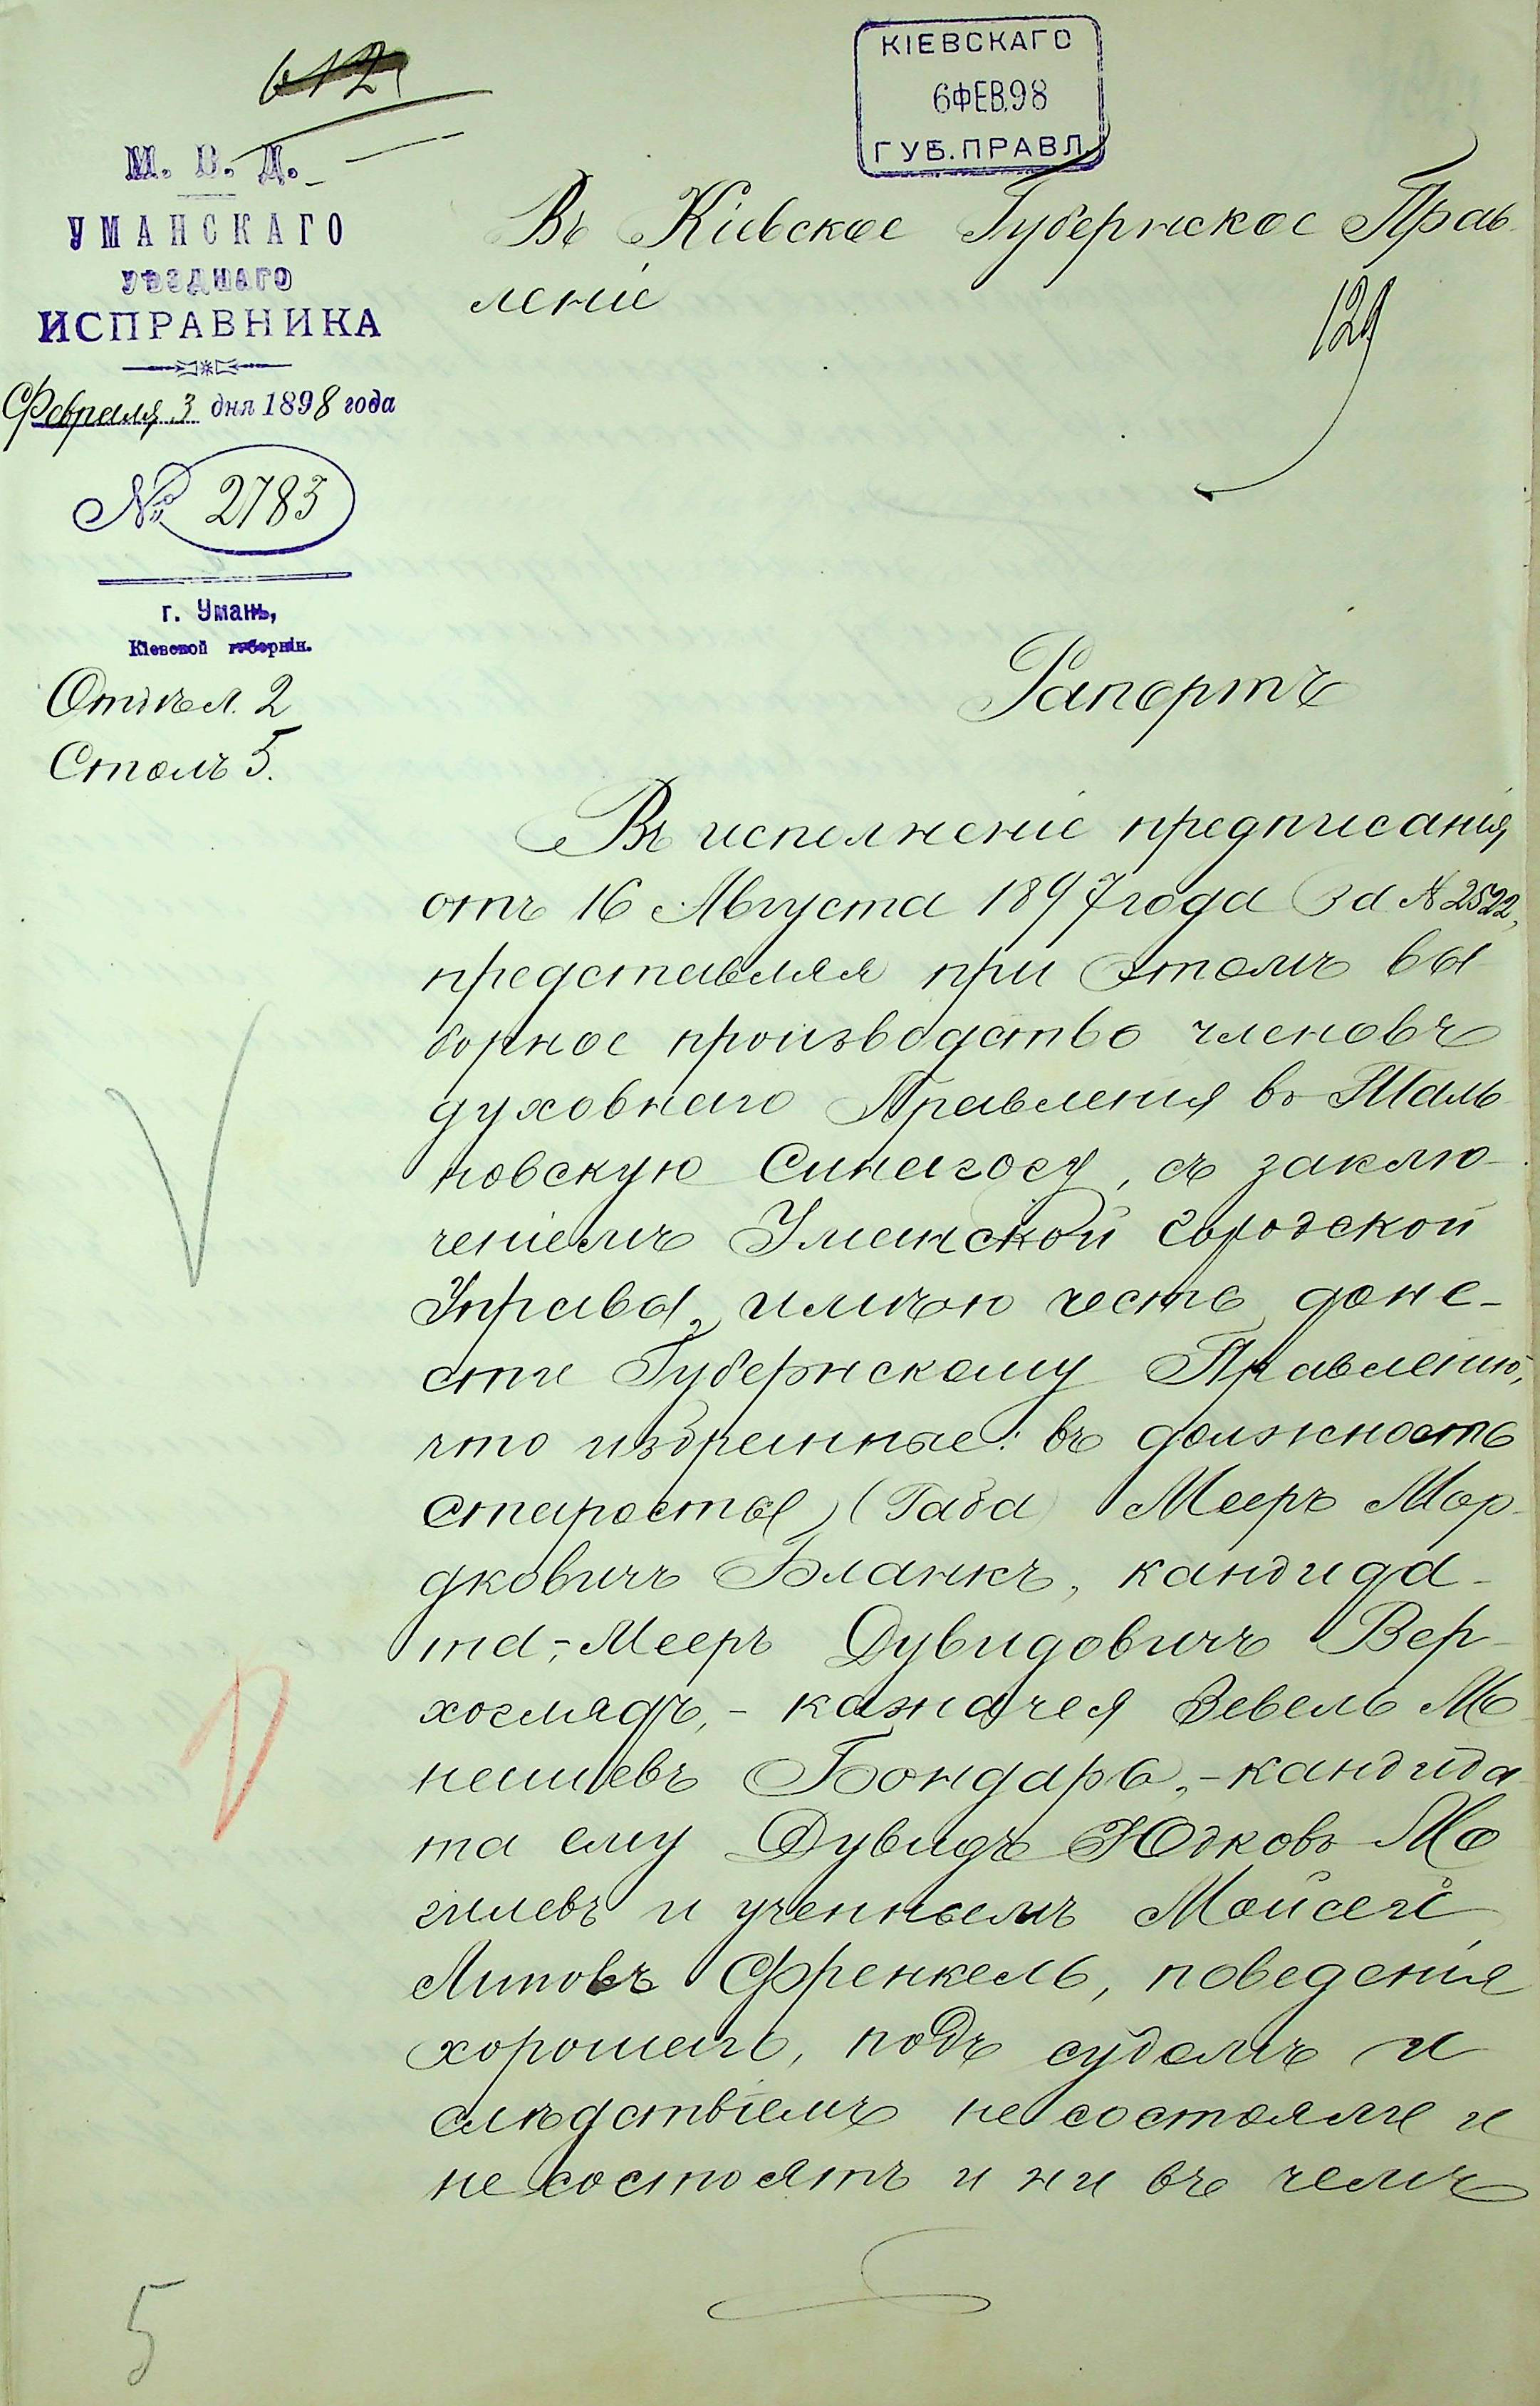 612
КІЕВСКАГО
6 ФЕВ. 98
ГУБ. ПРАВЛ.
М. В. Д.
УМАНСКАГО
УѢЗДНАГО
ИСПРАВНИКА
Февраля 3 дня 1898 года
№ 2783
г. Умань,
Кіевской губерніи.
Отдѣл. 2
Столъ 5.
Въ Кіевское Губернское Прав-
леніе
129
Рапортъ
Въ исполненіе предписанія
отъ 16 Августа 1897 года за № 2522,
представляя при этомъ вы
борное производство членовъ
духовнаго Правленія въ Таль-
новскую Синагогу, съ заклю-
ченіемъ Уманской Городской
Управы, имѣю честь доне-
сти Губернскому Правленію,
что избранные: въ должность
старосты (Габа) Мееръ Мор-
дковичъ Бланкъ, кандида-
та,- Мееръ Дувидовичъ Вер-
хоглядъ,- казначея Зевель Мо-
нешіевъ Бондарь,- кандида-
та ему Дувидъ Юдковъ Мо
гилевъ и ученнымъ Мойсей
Липовъ Френкель, поведенія
хорошаго, подъ судомъ и
слѣдствіемъ не состояли и
не состоятъ и ни въ чемъ
5